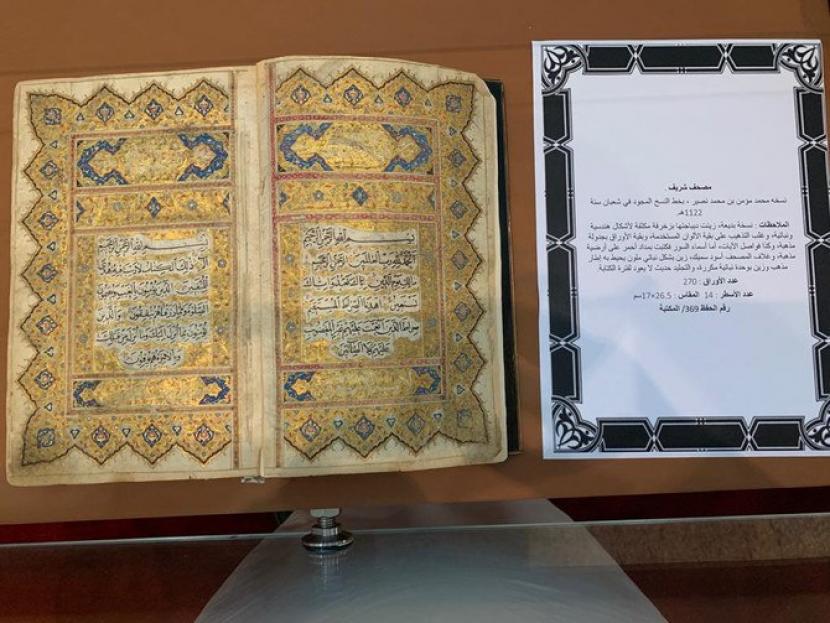 بسم الله الرحمن الرحيم
الحمد لله رب العالمين الرحمن الرحيم
مالك يوم الدين إياك نعبد وإياك
نستعين اهدنا الصراط المستقيم
صراط الذين أنعمت عليهم غير المغضوب
عليهم ولا الضالين
بسم الله الرحمن الرحيم
الم ذلك الكتاب لا ريب فيه هدى
للمتقين الذين يؤمنون بالغيب ويقيمون
الصلوة ومما رزقناهم ينفقون والذين
يؤمنون بما أنزل إليك وما أنزل من قبلك
وبالآخرة هم يوقنون
مصحف شريف .
نسخه محمد مؤمن بن محمد نصير ، بخط النسخ المجود في شعبان سنة
1122هـ.
الملاحظات : نسخة بديعة، زينت ديباجتها بزخرفة مكثفة لأشكال هندسية
ونباتية، وغلب التذهيب على بقية الألوان المستخدمة، وبقية الأوراق بجدولة
مذهبة، وكذا فواصل الآيات، أما أسماء السور فكتبت بمداد أحمر على أرضية
مذهبة، وغلاف المصحف أسود سميك، زين بشكل نباتي ملون يحيط به إطار
مذهب وزين بوحدة نباتية مكررة، والتجليد حديث لا يعود لفترة الكتابة.
عدد الأوراق : 270
عدد الأسطر : 14 المقاس : 26.5×17سم
رقم الحفظ 369/ المكتبة